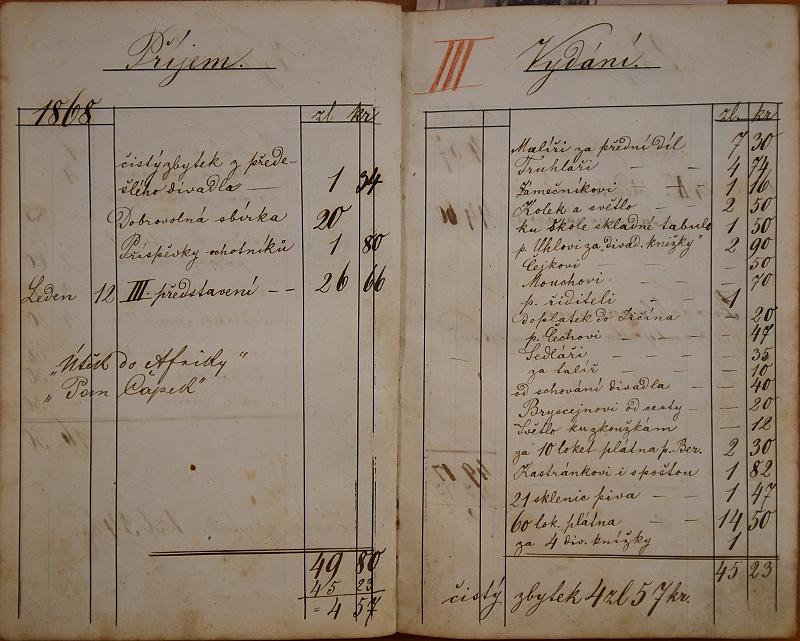 Příjem.
1868
zl kr
čistý zbytek z přede-
šlého divadla — 1 34
Dobrovolná sbírka 20
Příspěvky ochotníků 1 80
Leden 12 III představení — — 26 66
„Útěk do Afriky"
„Pan Čapek"
49 80
45 23
= 4 57
III
Vydání.
zl. kr
Malíři za přední díl 7 30
Truhláři — 4 74
Zámečníkovi — 1 16
Kolek a světlo — 2 50
ku škole skladné tabule 1 50
p. Uhlovi za „divad. knížky" 2 90
Čejkovi — — — 50
Mouchovi — — — 70
p. řiditeli — — 4
doplatek do Jičína — 20
p. Čechovi — — — 47
Sedláři — — — 35
za talíř — — — 10
od schování divadla — — 40
Bryscejnovi od cesty — — 20
Světlo ku zkouškám — 12
za 10 loket plátna p. Ber. 2 30
Kastránkovi i s poštou 1 82
21 sklenic piva — — 1 47
60 lok. plátna — — 14 50
za 4 div. knížky 1
45 23
čistý zbytek 4 zl 57 kr.